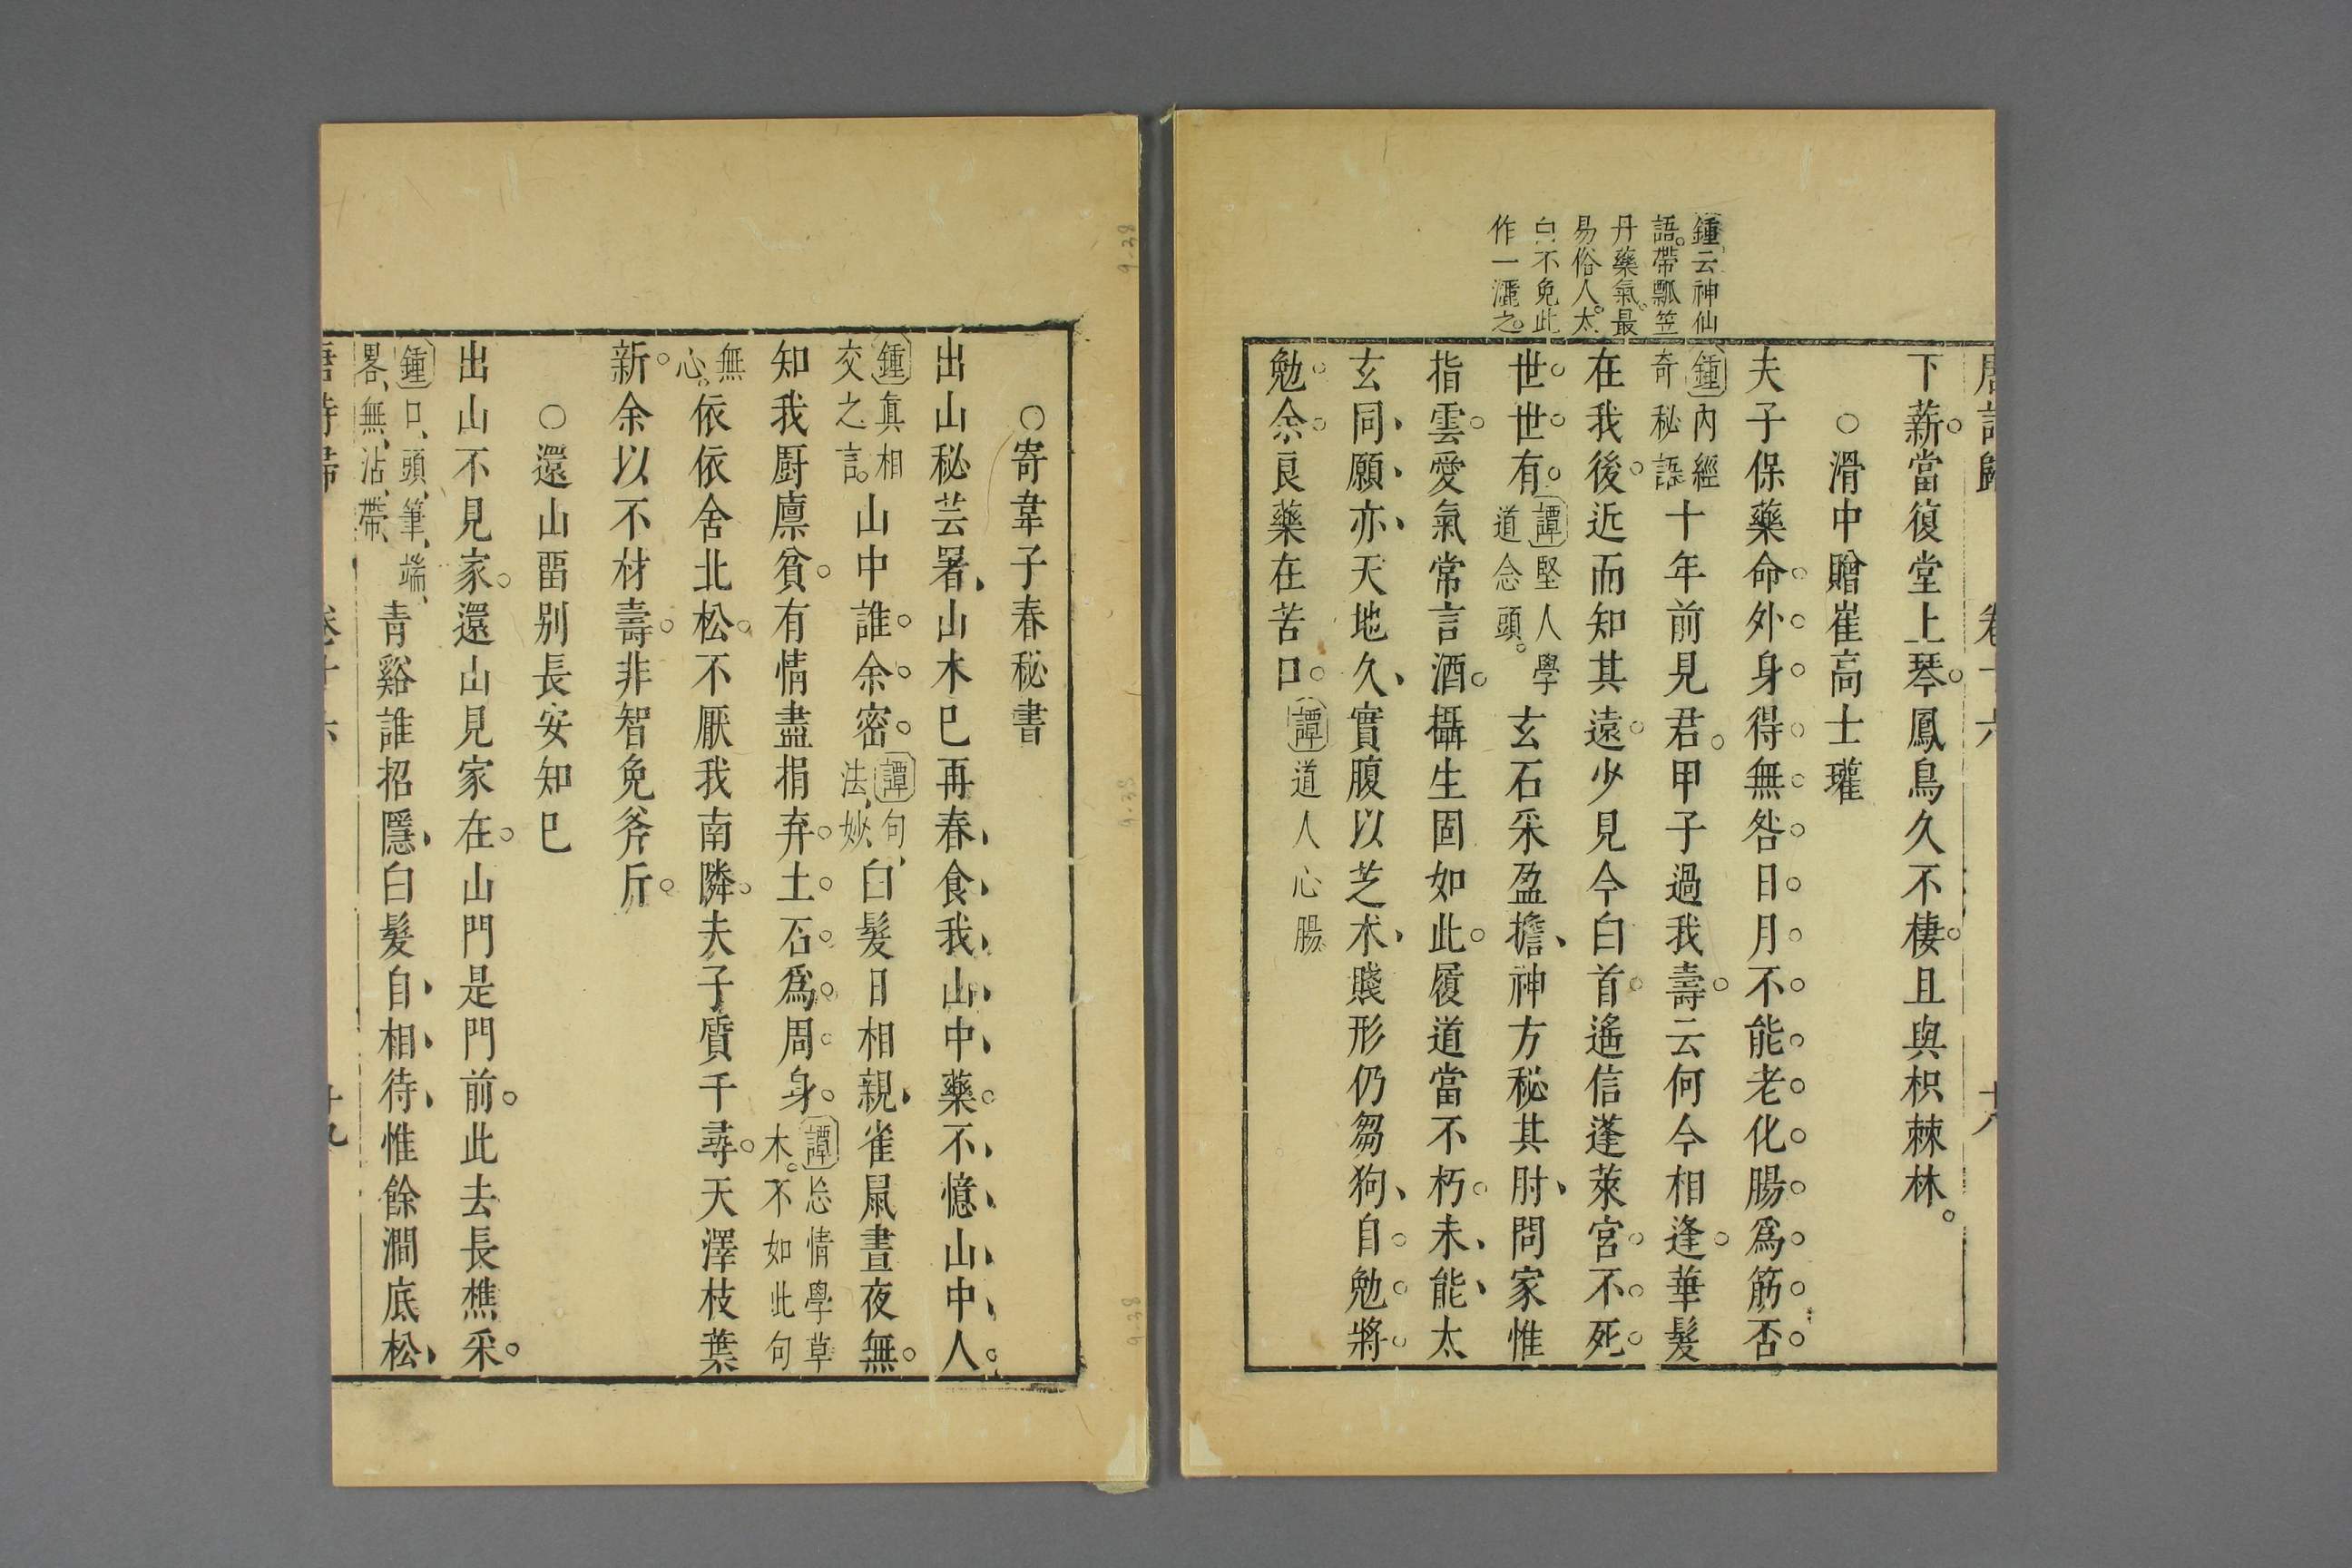 唐詩歸　卷十六　十八
下薪。當復堂上琴。鳳鳥久不棲。且與枳棘林。
○滑中贈崔高士瓘
夫子保藥命。外身得無咎。日月不能老。化腸爲筋否。
鍾云神仙
語。帶瓢笠
丹藥氣。最
易俗人。太
白不免此
作一洒之。
鍾內經奇秘語十年前見君。甲子過我壽。云何今相逢。華髮
在我後。近而知其遠。少見今白首。遙信蓬萊宮。不死
世世有。譚堅人學道念頭。玄石采盈擔、神方秘其肘、問家惟
指雲。愛氣常言酒。攝生固如此。履道當不朽。未、能、太
玄同、願、亦、天地久、實腹以芝术、賤形仍芻狗、自勉將
勉余。良藥在苦口。譚道人心腸
○寄韋子春秘書
出山秘芸署、山木已再春、食我、山中藥。不憶山中人。
鍾真相交之言。山中誰余密。譚句法、妙、白髮日相親、雀鼠晝夜無。
知我廚廩貧。有情盡捐弃。土石爲周身。譚忘情學草木。不如此句
無心。依依舍北松。不厭我南隣。夫子質千尋。天澤枝葉
新。余以不材壽。非智免斧斤。
○還山畱別長安知已
出山不見家。還山見家在。山門是門前。此去長樵采。
鍾口、頭、筆、端、畧、無、沾、帶、青谿誰招隱、白髮自相待、惟餘澗底松、
唐詩歸　卷十六　十九